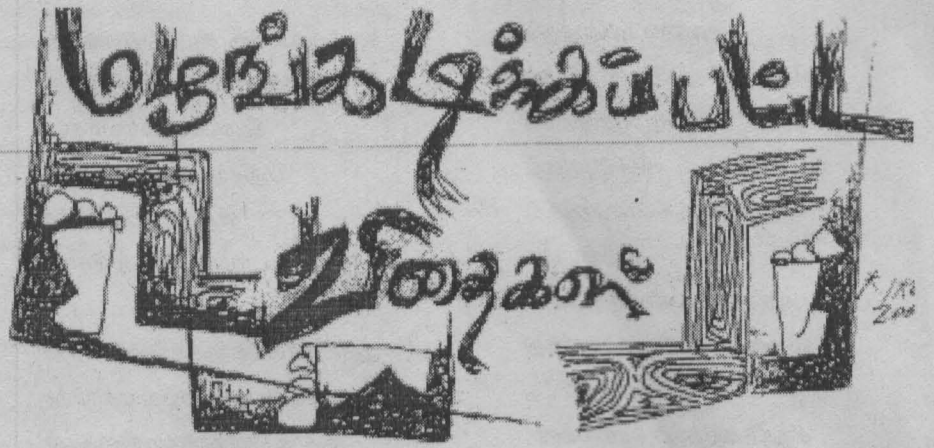 மழுங்கடிக்கப்பட்ட
விதைகள்